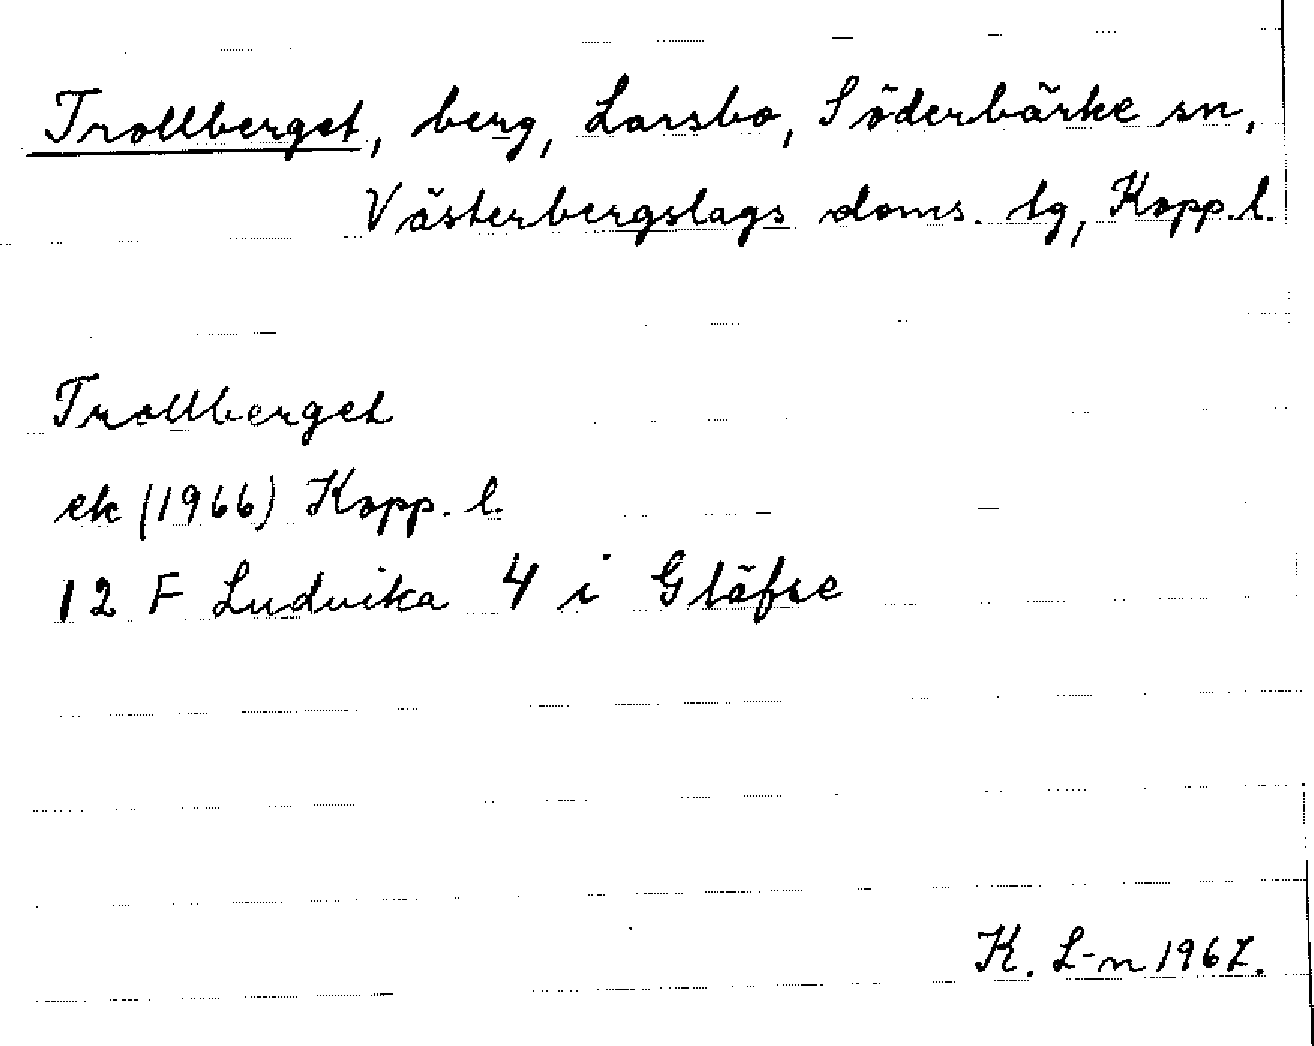 Trollberget, berg, Larsbo, Söderbärke sn,
Västerbergslags doms. lg, Kopp. l.
Trollberget
ek (1966) Kopp. l.
12 F Ludvika 4 i Gläfse
K. L-n 1967.